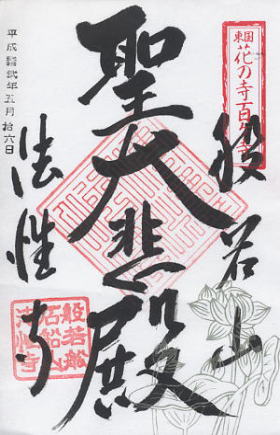 東国
花の寺百ヶ寺
般若山
聖大悲殿
法性寺
平成弐年五月拾六日
般若船
法性寺